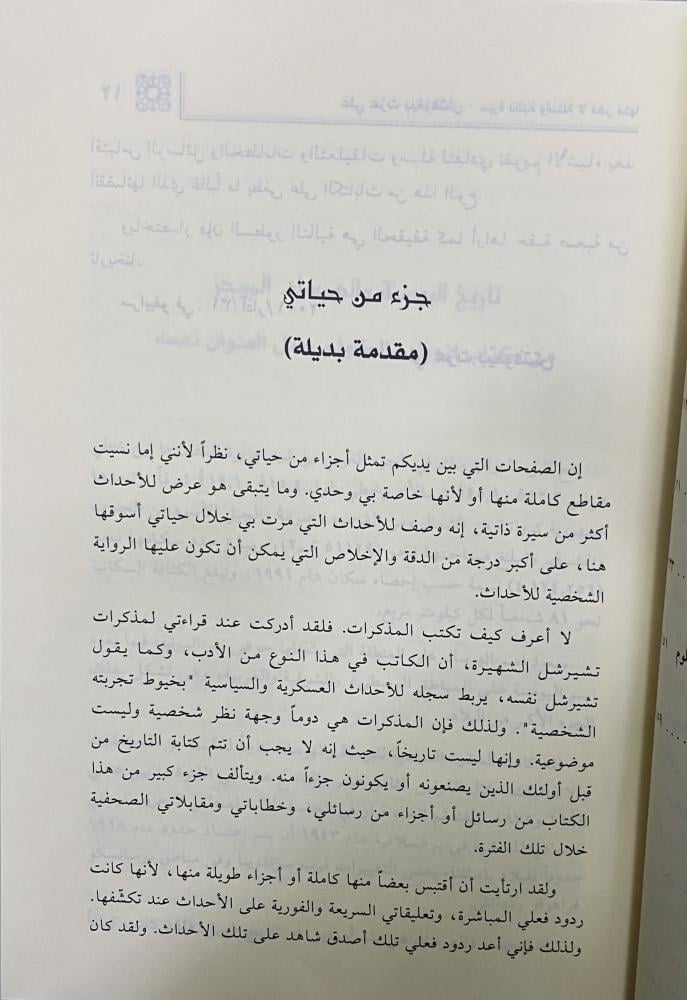 جزء من حياتي
(مقدمة بديلة)
إن الصفحات التي بين يديكم تمثل أجزاء من حياتي، نظراً لأنني إما نسيت
مقاطع كاملة منها أو لأنها خاصة بي وحدي. وما يتبقى هو عرض للأحداث
أكثر من سيرة ذاتية، إنه وصف للأحداث التي مرت بي خلال حياتي أسوقها
هنا، على أكبر درجة من الدقة والإخلاص التي يمكن أن تكون عليها الرواية
الشخصية للأحداث.
لا أعرف كيف تكتب المذكرات. فلقد أدركت عند قراءتي لمذكرات
تشيرشل الشهيرة، أن الكاتب في هذا النوع من الأدب، وكما يقول
تشيرشل نفسه، يربط سجله للأحداث العسكرية والسياسية "بخيوط تجربته
الشخصية". ولذلك فإن المذكرات هي دوماً وجهة نظر شخصية وليست
موضوعية. وإنها ليست تاريخاً، حيث إنه لا يجب أن تتم كتابة التاريخ من
قبل أولئك الذين يصنعونه أو يكونون جزءاً منه. ويتألف جزء كبير من هذا
الكتاب من رسائل أو أجزاء من رسائلي، وخطاباتي ومقابلاتي الصحفية
خلال تلك الفترة.
ولقد ارتأيت أن أقتبس بعضاً منها كاملة أو أجزاء طويلة منها، لأنها كانت
ردود فعلي المباشرة، وتعليقاتي السريعة والفورية على الأحداث عند تكشّفها.
ولذلك فإني أعد ردود فعلي تلك أصدق شاهد على تلك الأحداث. ولقد كان